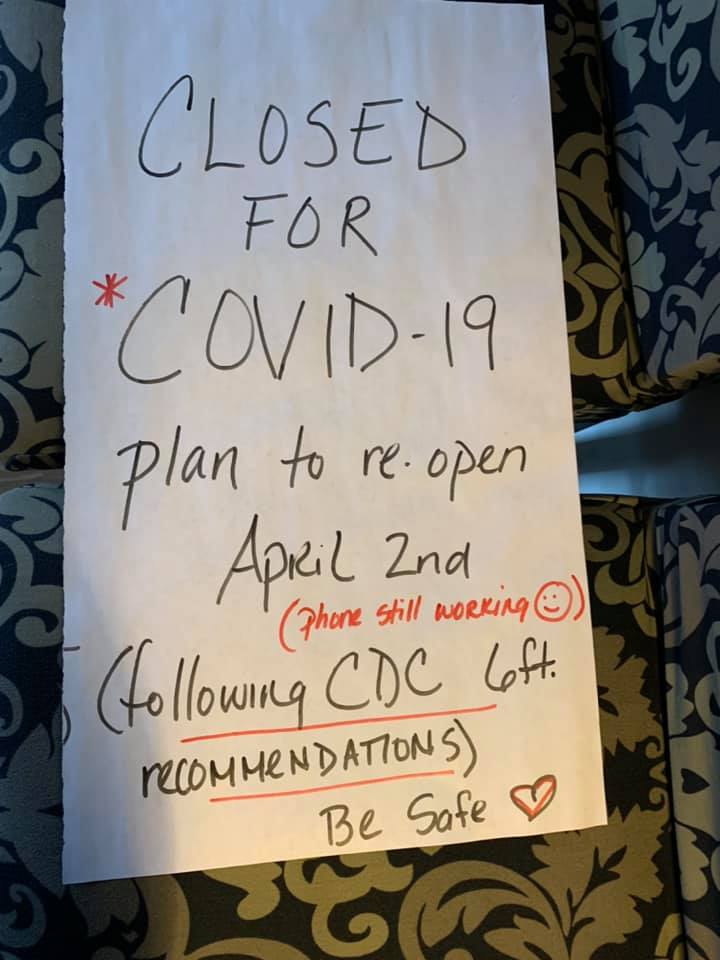 CLOSED
FOR
*COVID-19
plan to re-open
April 2nd
(phone still working ☺)
(following CDC 6ft.
recommendations)
Be Safe ♡